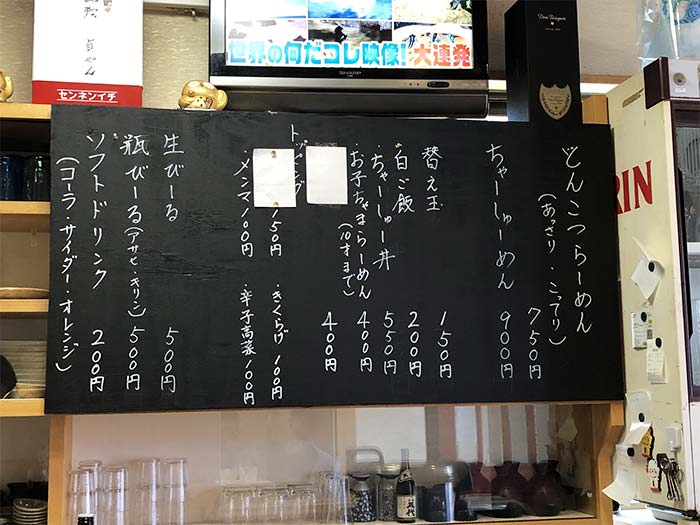 世界の何だコレ映像!大連発
SHARP
Dom Pérignon
センネンイチ
RIN
とんこつらーめん 750円
(あっさり・こってり)
ちゃーしゅーめん 900円
替え玉 150円
白ご飯 200円
・ちゃーしゅー丼 550円
・お子ちゃまらーめん 400円
(10才まで)
400円
トッピング
150円 ・きくらげ 100円
・メンマ 100円 ・辛子高菜 100円
生びーる 500円
瓶びーる(アサヒ・キリン) 500円
ソフトドリンク 200円
(コーラ・サイダー・オレンジ)